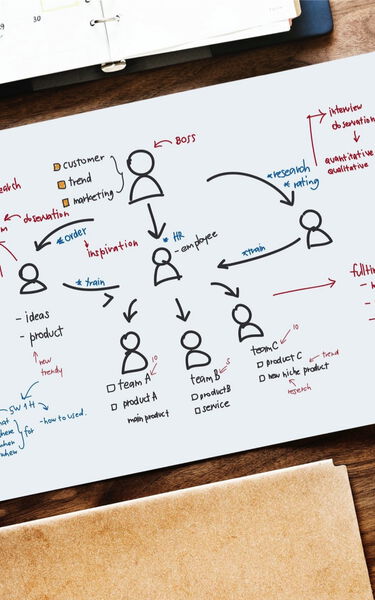 29
30
interview
observation
quantitative
qualitative
BOSS
customer
trend
marketing
*research
*rating
observation
*order
inspiration
* HR
- employee
*train
*train
- ideas
- product
new
trendy
5W 1H
where
when
for
- how to used.
10
team A
product A
main product
5
team B
product B
service
10
team C
product C
trend
new niche product
research